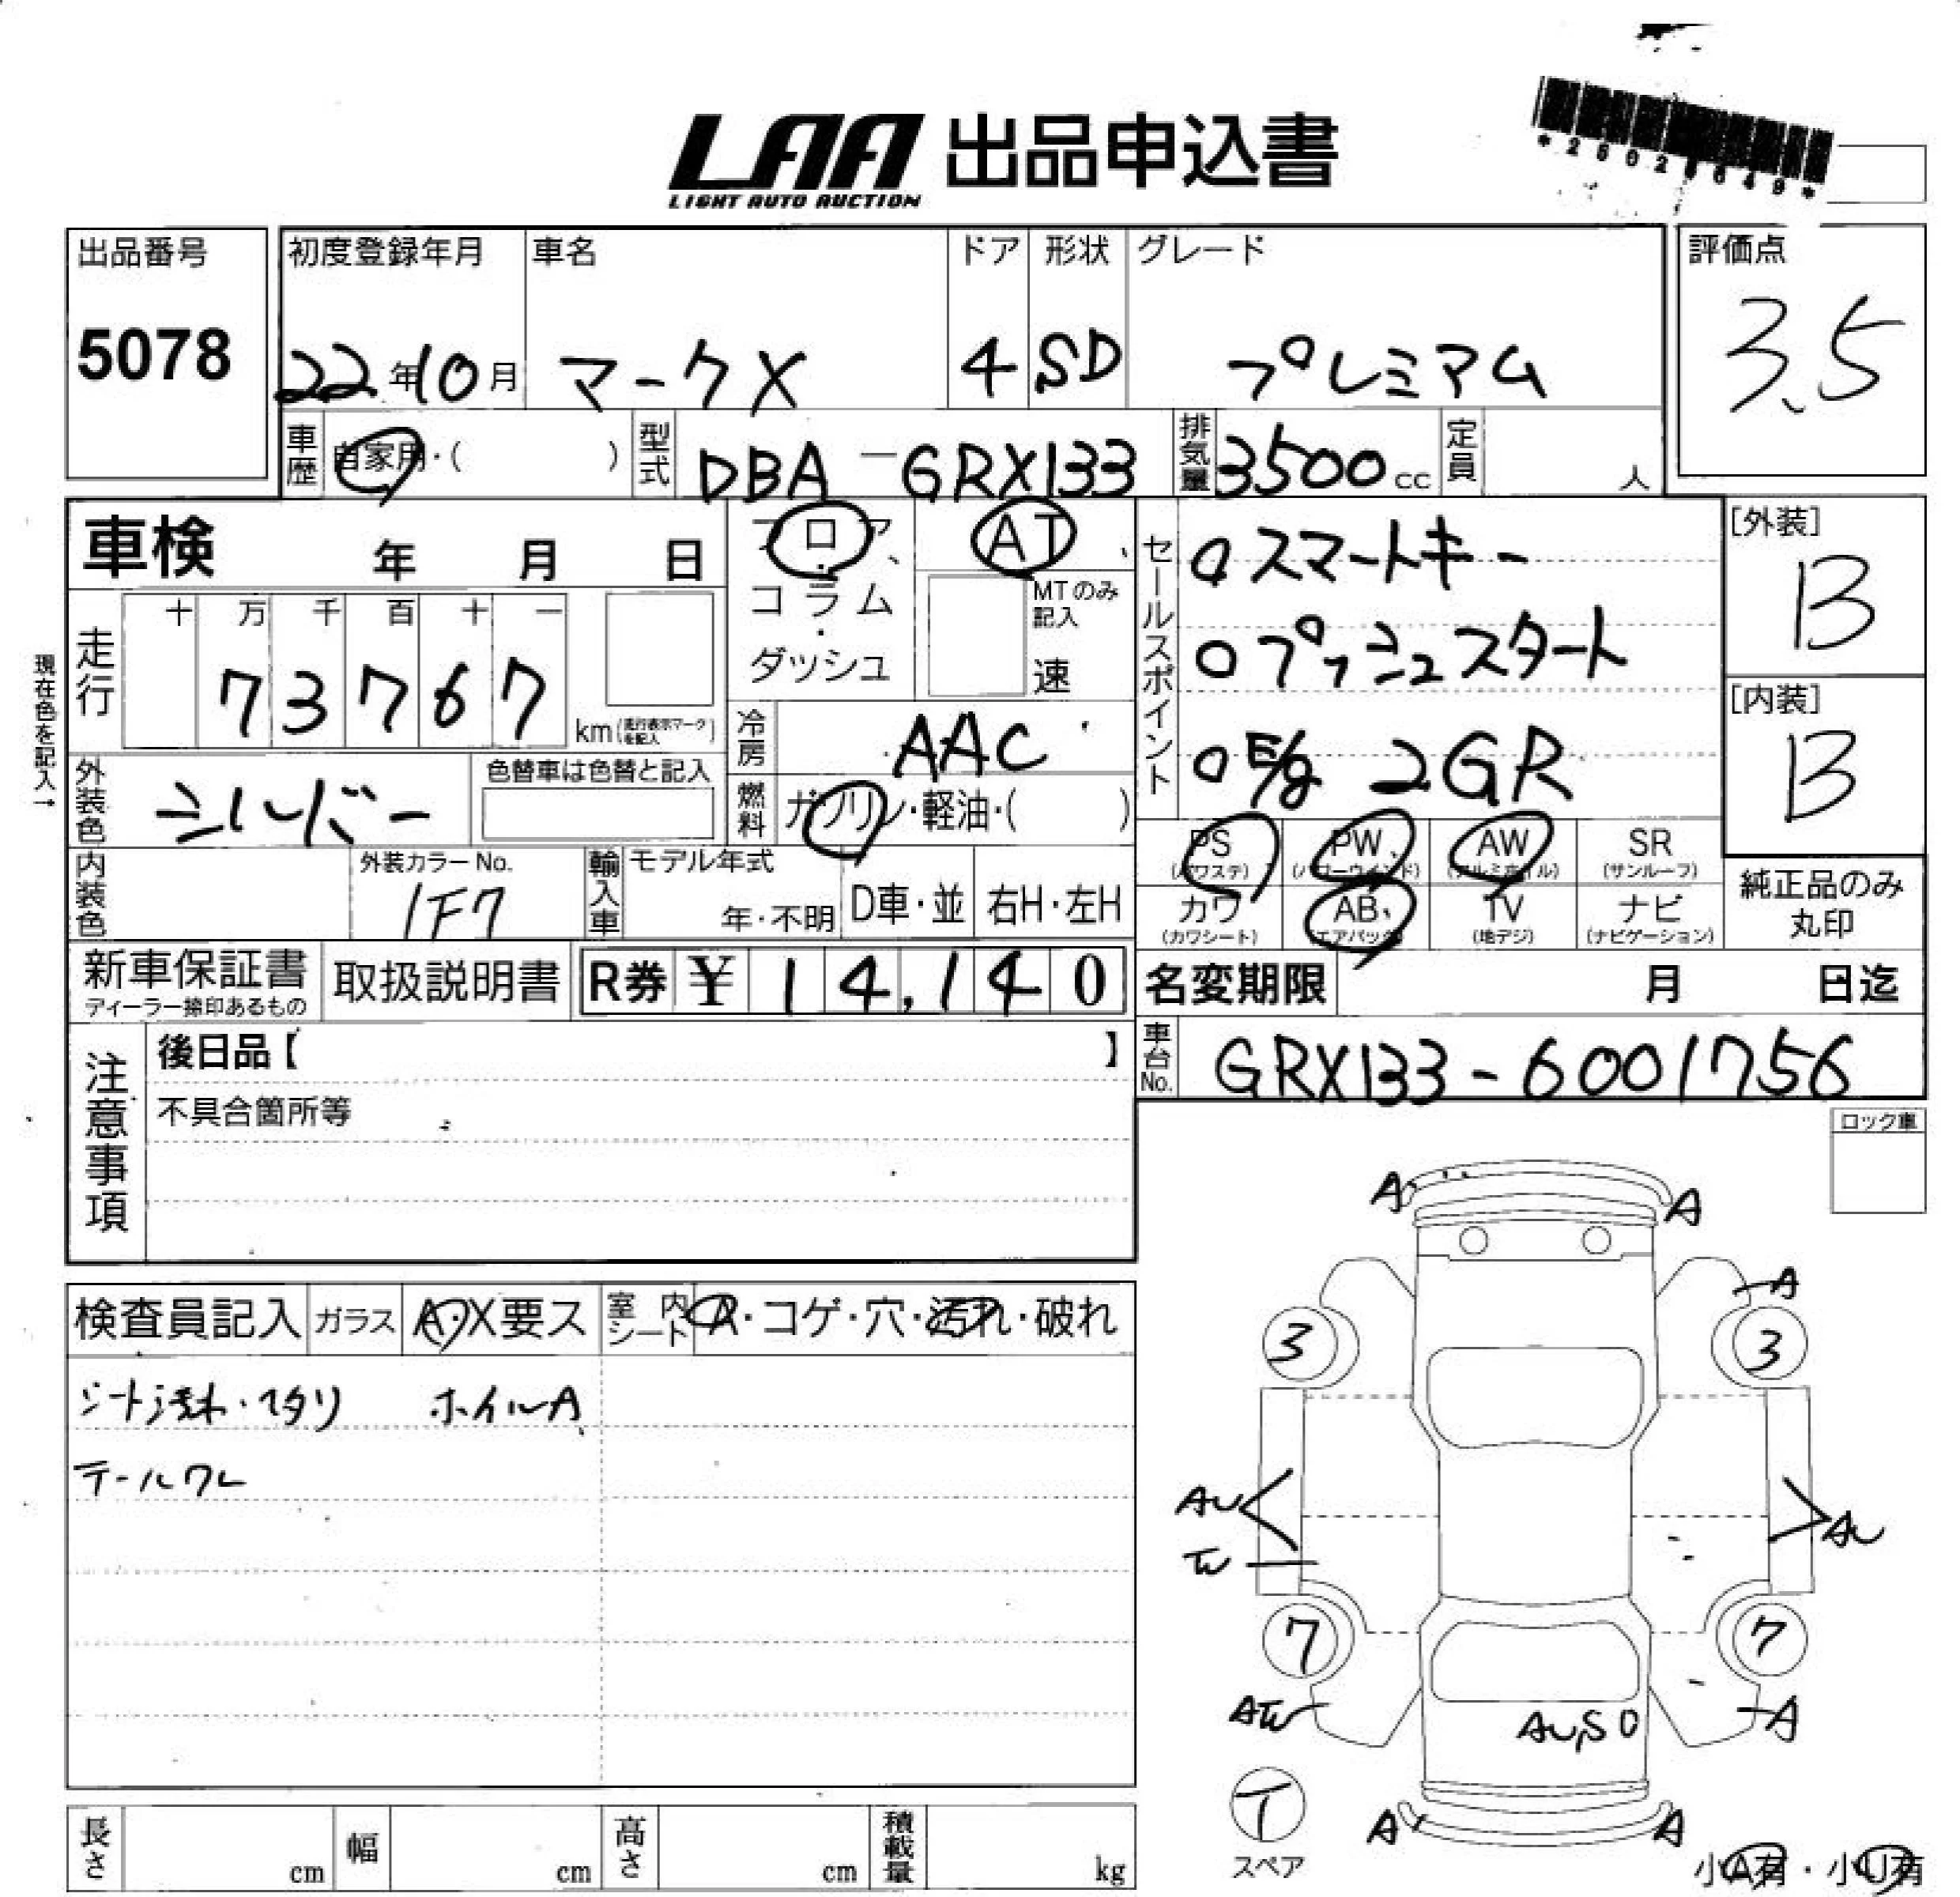 LAA 出品申込書
LIGHT AUTO AUCTION
出品番号
5078
初度登録年月
22年10月
車名
マークX
ドア
4
形状
SD
グレード
プレミアム
評価点
3.5
車歴
自家用・( )
型式
DBA-GRX133
排気量
3500cc
定員
人
車検 年 月 日
フロア
コラム
・
ダッシュ
AT
MTのみ
記入
速
セールスポイント
○スマートキー
○プッシュスタート
○E/g 2GR
[外装]
B
[内装]
B
現在色を記入→
走行
十 万 千 百 十 一
7 3 7 6 7
km(走行表示マークを記入)
冷房
AAC
外装色
シルバー
色替車は色替と記入
燃料
ガソリン・軽油・( )
PS
(パワステ)
PW
(パワーウインド)
AW
(アルミホイル)
SR
(サンルーフ)
カワ
(カワシート)
AB
(エアバック)
TV
(地デジ)
ナビ
(ナビゲーション)
純正品のみ
丸印
内装色
外装カラーNo.
1F7
輸入車
モデル年式
年・不明
D車・並
右H・左H
新車保証書
ディーラー捺印あるもの
取扱説明書
R券 ¥ 14,140
名変期限 月 日迄
車台No.
GRX133-6001756
注意事項
後日品【 】
不具合箇所等
ロック車
検査員記入
ガラス
A・X要ス
室内シート
A・コゲ・穴・汚れ・破れ
シート汚れ・スタリ ホイルA
テールワレ
A A
A
3 3
AU
AU
W
7 7
AW
A
AU,S0
T
スペア
A A
小A有・小U有
長さ
cm
幅
cm
高さ
cm
積載量
kg